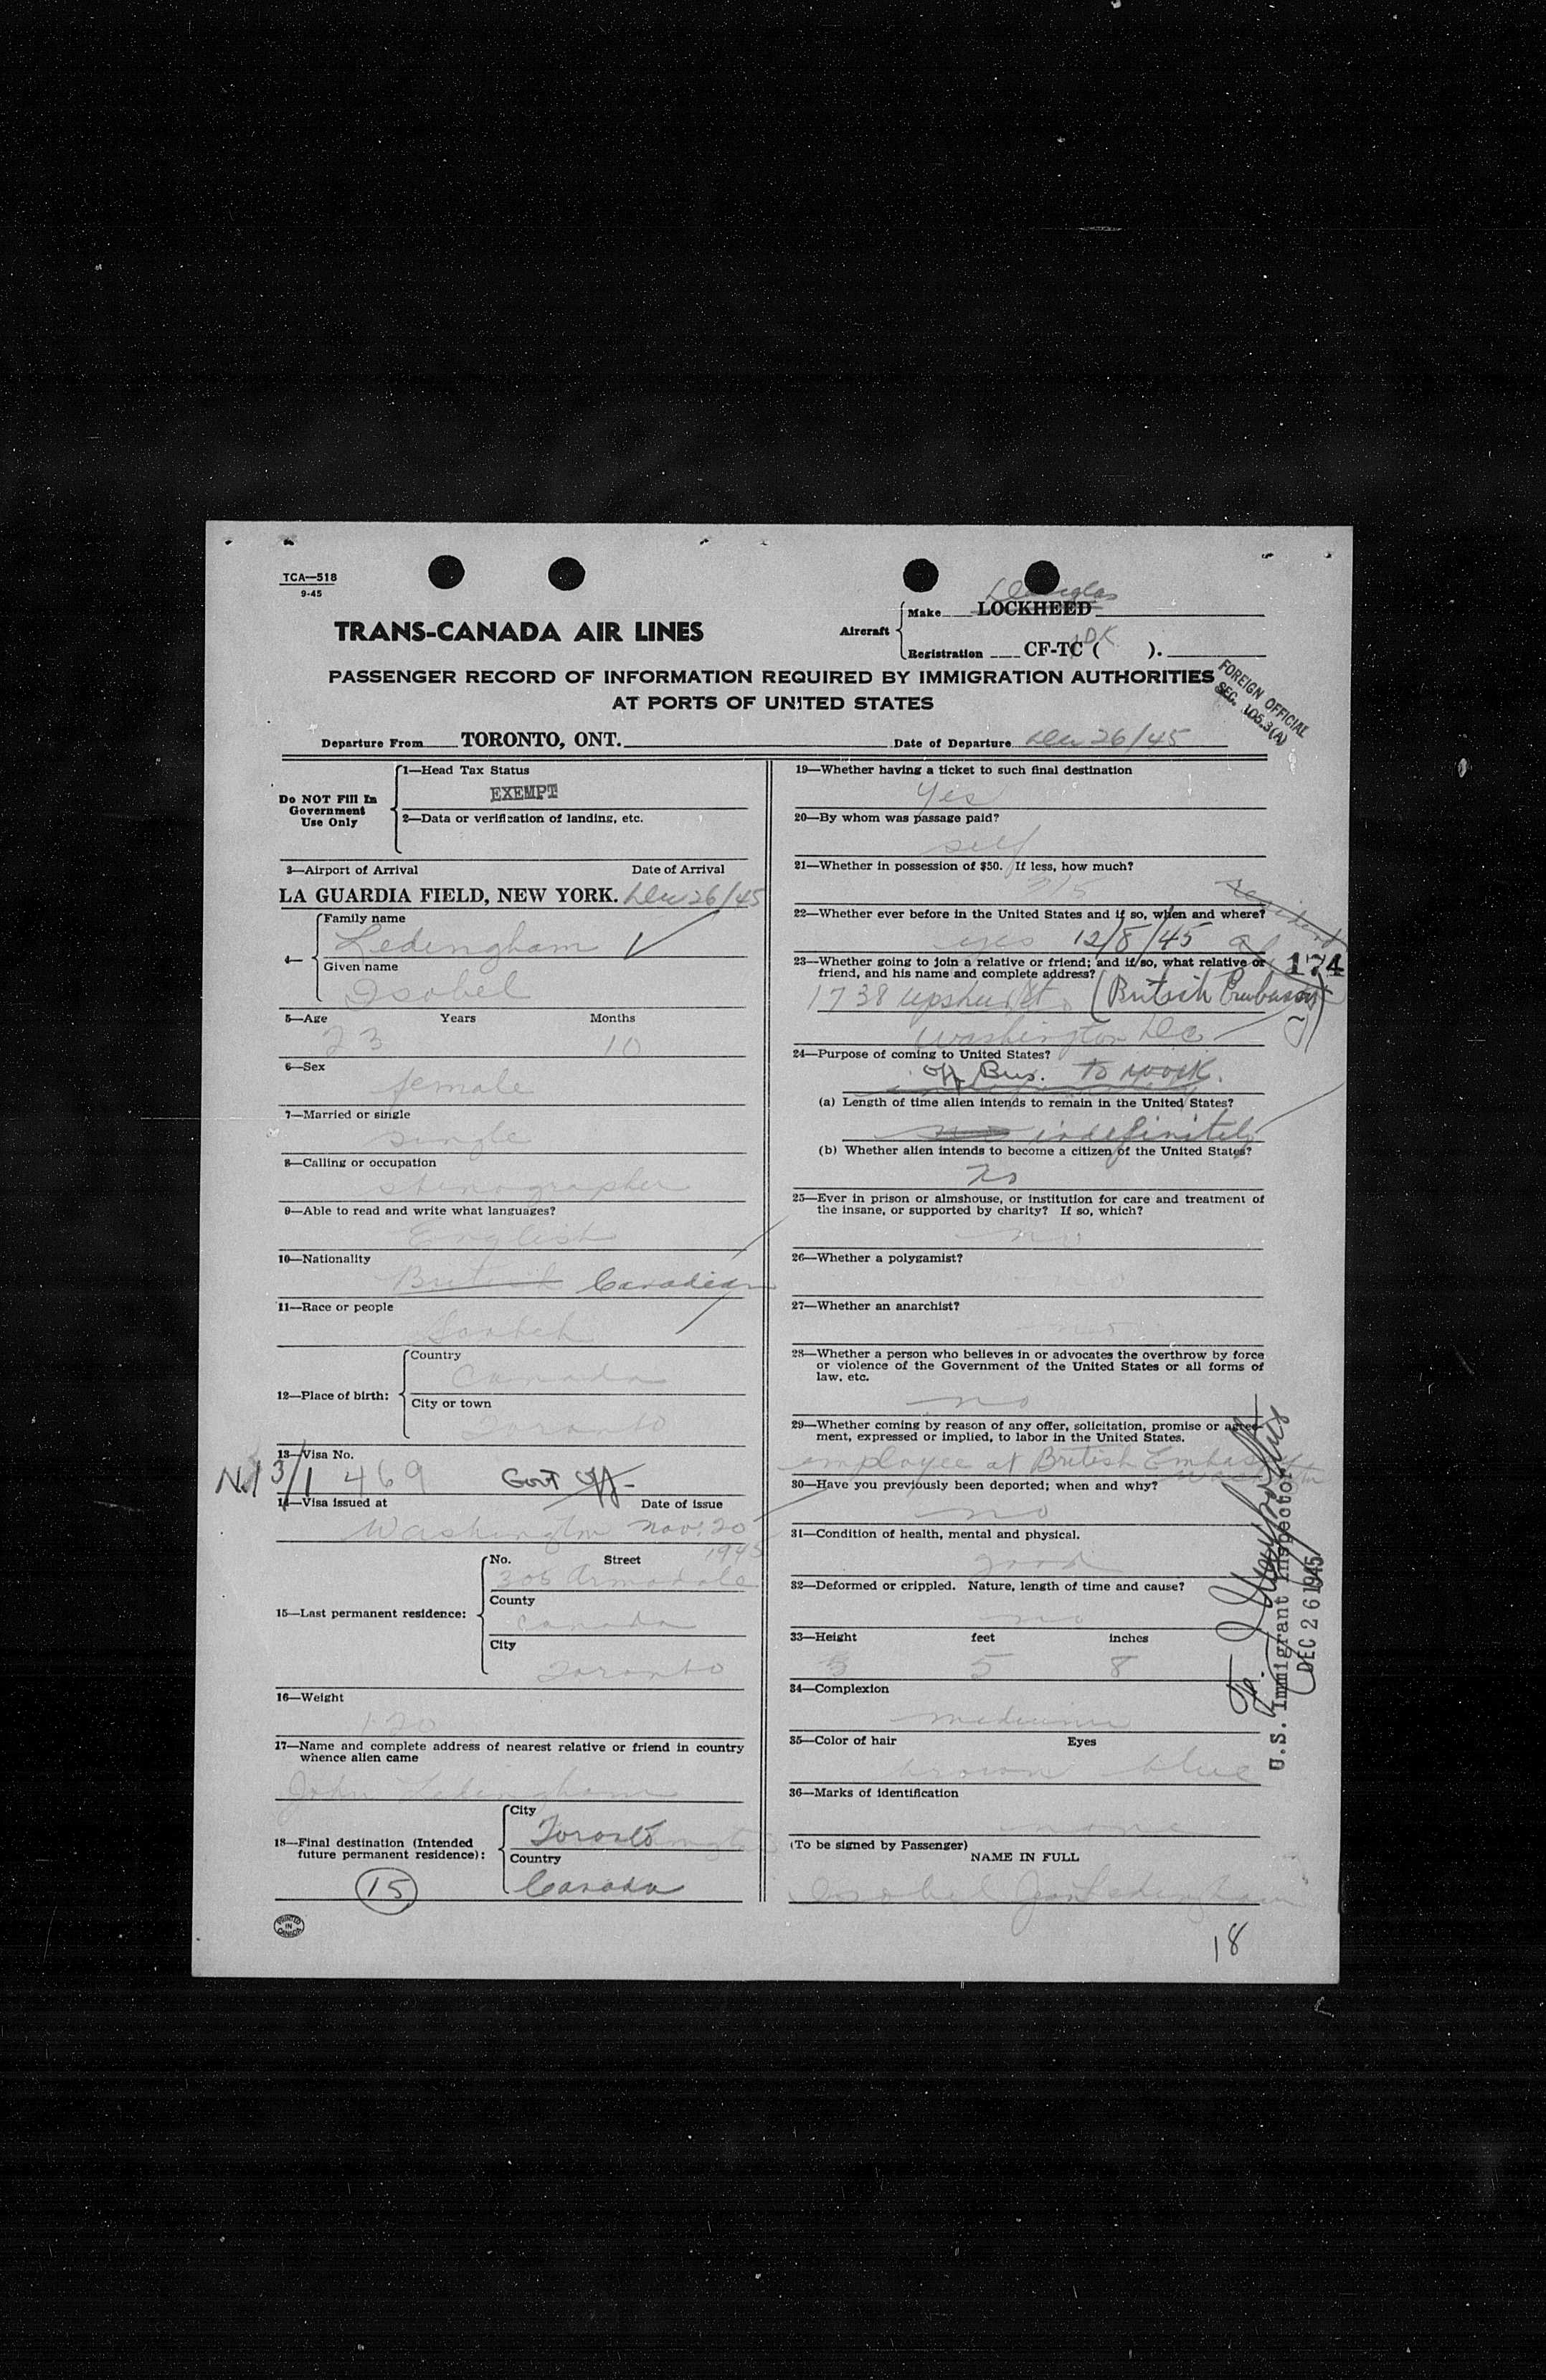 TCA—518
9-45
TRANS-CANADA AIR LINES
Aircraft
Make Douglas LOCKHEED
Registration CF-TC ( DK ).
PASSENGER RECORD OF INFORMATION REQUIRED BY IMMIGRATION AUTHORITIES
AT PORTS OF UNITED STATES
FOREIGN OFFICIAL
SEC. 105.3(A)
Departure From TORONTO, ONT.
Date of Departure Dec 26/45
Do NOT Fill In
Government
Use Only
1—Head Tax Status
EXEMPT
2—Data or verification of landing, etc.
3—Airport of Arrival Date of Arrival
LA GUARDIA FIELD, NEW YORK. Dec 26/45
4—
Family name
Ledingham
Given name
Isobel
5—Age Years Months
23 10
6—Sex
female
7—Married or single
single
8—Calling or occupation
stenographer
9—Able to read and write what languages?
English
10—Nationality
British Canadian
11—Race or people
Scotch
12—Place of birth:
Country
Canada
City or town
Toronto
13—Visa No.
3/1 469 Govt Off-
14—Visa issued at Date of issue
Washington Nov. 20
1945
15—Last permanent residence:
No. Street
306 Armadale
County
Canada
City
Toronto
16—Weight
120
17—Name and complete address of nearest relative or friend in country
whence alien came
John Ledingham
18—Final destination (Intended
future permanent residence):
City
Toronto
Country
Canada
15
PRINTED
IN
CANADA
19—Whether having a ticket to such final destination
yes
20—By whom was passage paid?
self
21—Whether in possession of $50. If less, how much?
22—Whether ever before in the United States and if so, when and where?
yes 12/8/45
23—Whether going to join a relative or friend; and if so, what relative or
friend, and his name and complete address?
174
1738 Upshur St. (British Embassy)
Washington DC
24—Purpose of coming to United States?
Off Bus. to work.
(a) Length of time alien intends to remain in the United States?
indefinitely
(b) Whether alien intends to become a citizen of the United States?
No
25—Ever in prison or almshouse, or institution for care and treatment of
the insane, or supported by charity? If so, which?
no
26—Whether a polygamist?
27—Whether an anarchist?
no
28—Whether a person who believes in or advocates the overthrow by force
or violence of the Government of the United States or all forms of
law, etc.
no
29—Whether coming by reason of any offer, solicitation, promise or agree-
ment, expressed or implied, to labor in the United States.
employee at British Embassy
Washington
30—Have you previously been deported; when and why?
no
31—Condition of health, mental and physical.
good
32—Deformed or crippled. Nature, length of time and cause?
no
33—Height feet inches
5 8
34—Complexion
medium
35—Color of hair Eyes
brown blue
36—Marks of identification
none
(To be signed by Passenger)
NAME IN FULL
Isobel Jean Ledingham
U.S. Immigrant Inspector
DEC 26 1945
18